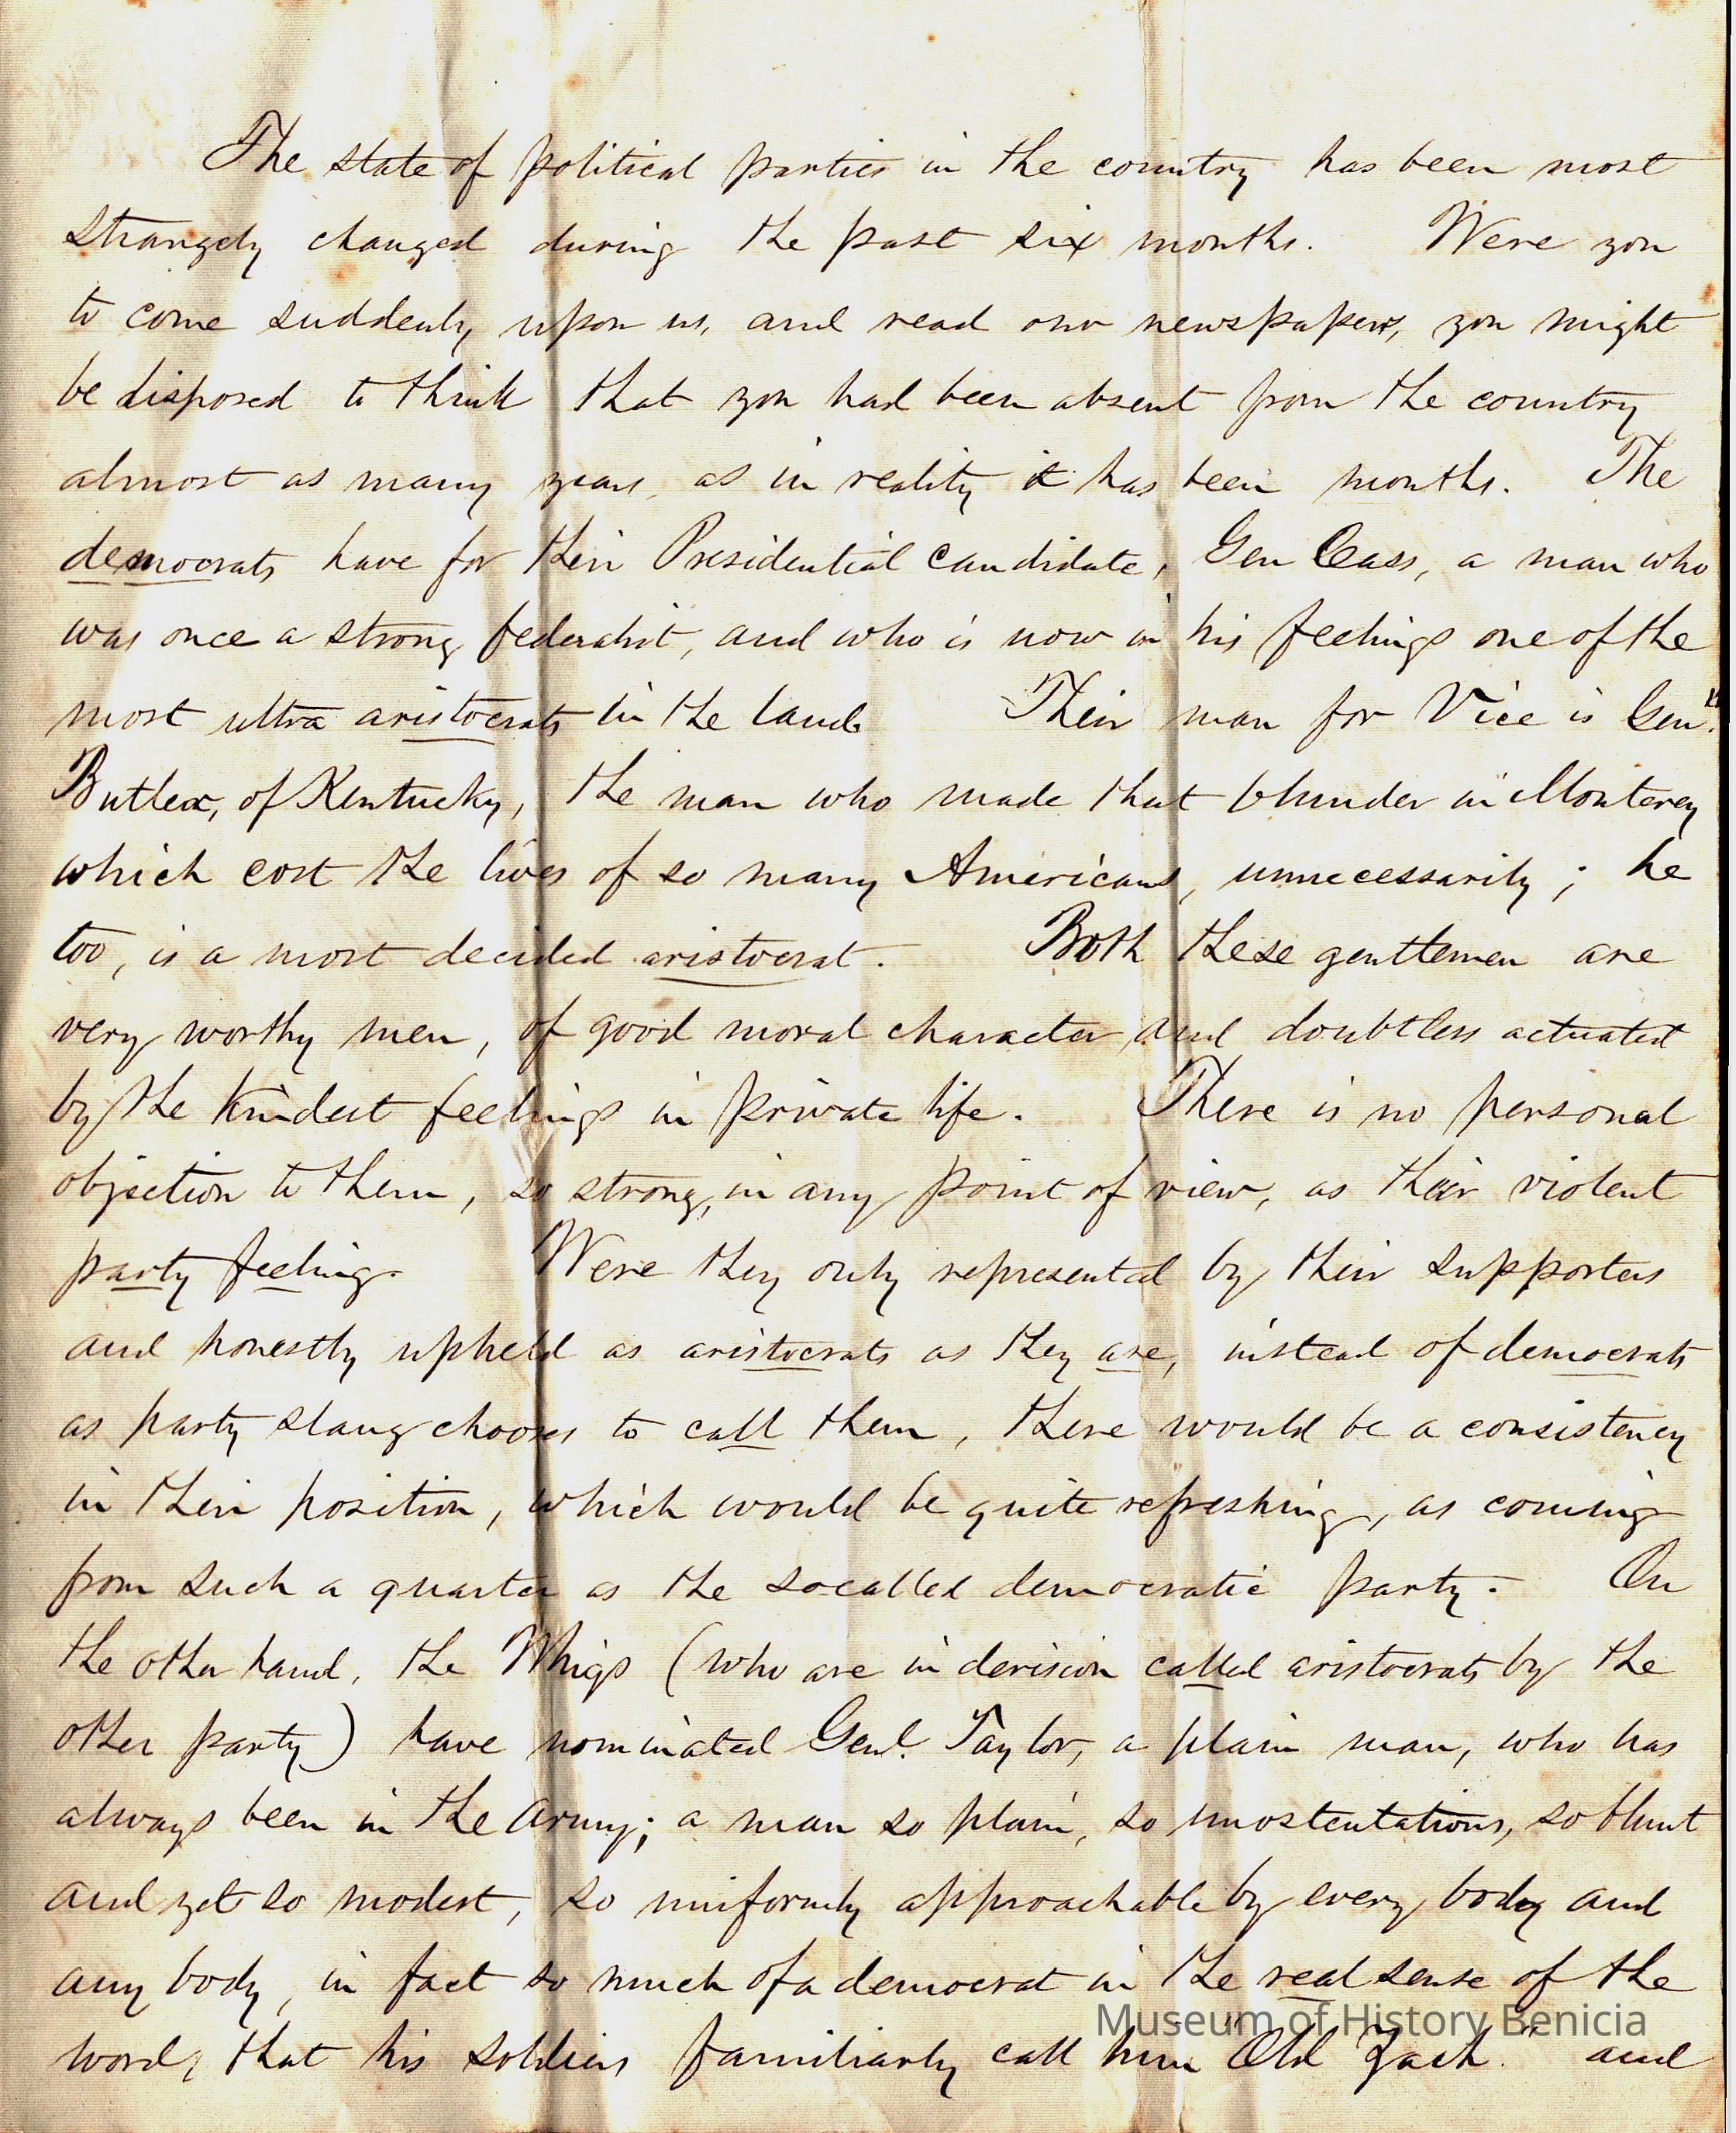 The state of political parties in the country has been most
strangely changed during the past six months. Were you
to come suddenly upon us, and read our newspapers, you might
be disposed to think that you had been absent from the country
almost as many years, as in reality it has been months. The
democrats have for their Presidential candidate, Gen Cass, a man who
was once a strong federalist, and who is now in his feelings one of the
most ultra aristocrats in the land Their man for Vice is Genl.
Butler, of Kentucky, the man who made that blunder in Monterey
which cost the lives of so many Americans, unnecessarily; he
too, is a most decided aristocrat. Both these gentlemen are
very worthy men, of good moral character, and doubtless actuated
by the kindest feelings in private life. There is no personal
objection to them, so strong, in any point of view, as their violent
party feeling. Were they only represented by their supporters
and honestly upheld as aristocrats as they are, instead of democrats
as party slang chooses to call them, there would be a consistency
in their position, which would be quite refreshing, as coming
from such a quarter as the socalled democratic party. On
the other hand, the Whigs (who are in derision called aristocrats by the
other party) have nominated Genl. Taylor, a plain man, who has
always been in the Army; a man so plain, so unostentatious, so blunt
and yet so modest, so uniformly approachable by every body and
any body, in fact so much of a democrat in the real sense of the
word, that his soldiers familiarly call him "Old Zach." and
Museum of History Benicia